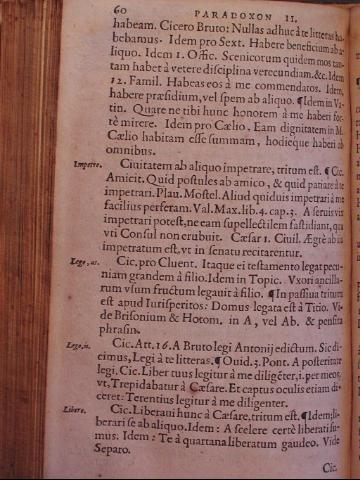 60 PARADOXON II.
habeam. Cicero Bruto: Nullas adhuc à te litteras ha-
bebamus. Idem pro Sext. Habere beneficium ab a-
liquo. Idem 1. Offic. Scenicorum quidem mos tan-
tam habet à vetere disciplina verecundiam. &c. Idem
12. Famil. Habeas eos à me commendatos. Idem,
habere præsidium, vel spem ab aliquo. ¶ Idem in Va-
tin. Quare ne tibi hunc honorem à me haberi for-
tè mirere. Idem pro Cælio, Eam dignitatem in M.
Cælio habitam esse summam, hodieque haberi ab
omnibus.
Impetro. Ciuitatem ab aliquo impetrare, tritum est. ¶ Cic.
Amicit. Quid postules ab amico, & quid patiare à te
impetrari. Plau. Mostel. Aliud quiduis impetrari à me
facilius perferam. Val. Max. lib. 4. cap. 3. A seruis vix
impetrari potest, ne eam supellectilem fastidiant, qua
vti Consul non erubuit. Cæsar 1. Ciuil. Ægrè ab iis
impetratum est, vt in senatu recitarentur.
Lego, as. Cic. pro Cluent. Itaque ei testamento legat pecu-
niam grandem à filio. Idem in Topic. Vxori ancilla-
rum vsum fructum legauit à filio. ¶ In passiua tritum
est apud Iurisperitos: Domus legata est à Titio. Vi-
de Brisonium & Hotom. in A, vel Ab. & pensita
phrasin.
Lego, is. Cic. Att. 16. A Bruto legi Antonij edictum. Sic di-
cimus, Legi à te litteras. ¶ Ouid. 3. Pont. A posteritate
legi. Cic. Liber tuus legitur à me diligẽter, i. per me:
vt, Trepidabatur à Cæsare. Et captus oculis etiam di-
ceret: Terentius legitur à me diligenter.
Libero. Cic. Liberaui hunc à Cæsare, tritum est. ¶ Idem: li-
berari se ab aliquo. Idem: A scelere certè liberati su-
mus. Idem: Te à quartana liberatum gaudeo. Vide
Separo.
Cic.